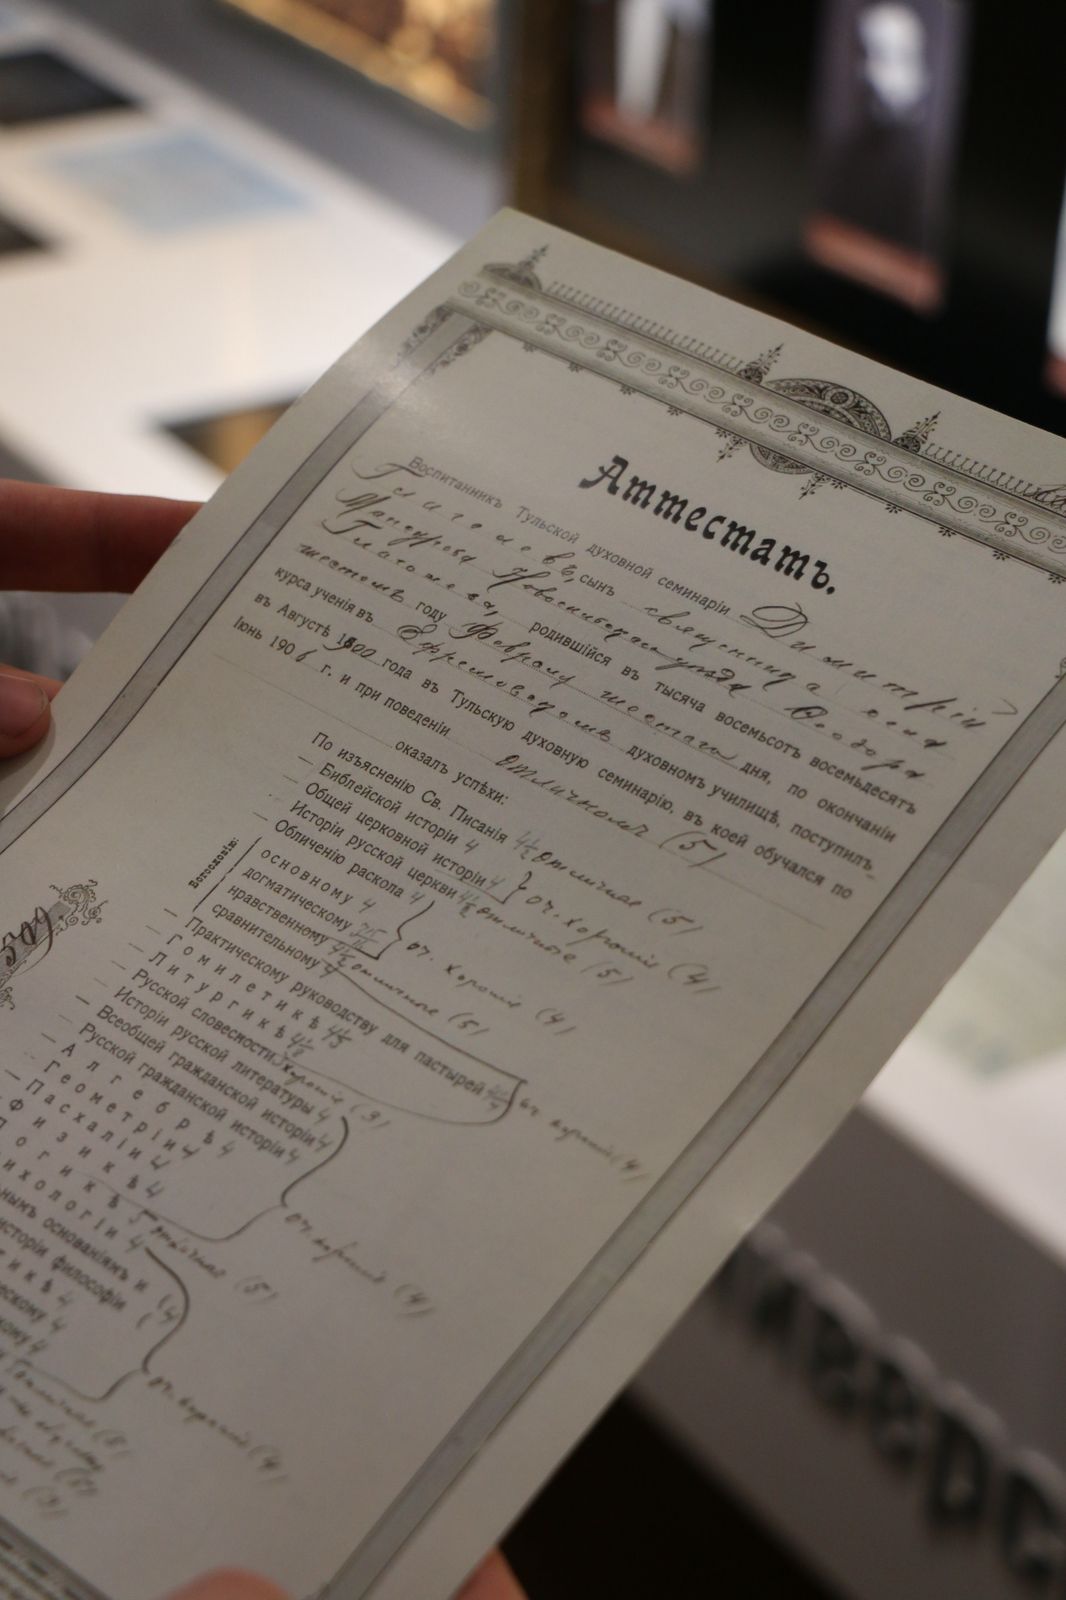 Аттестатъ.
Воспитанникъ Тульской духовной семинаріи Димитрій
Глаголевъ, сынъ священника села
уѣзда Ѳеодора
Глаголева, родившійся въ тысяча восемьсотъ восемьдесятъ
шестомъ году Февраля шестаго дня, по окончаніи
курса ученія въ Ефремовскомъ духовномъ училищѣ, поступилъ
въ Августѣ 1900 года въ Тульскую духовную семинарію, въ коей обучался по
Іюнь 1906 г. и при поведеніи отличномъ (5)
оказалъ успѣхи:
По изъясненію Св. Писанія 4½ отличные (5)
— Библейской исторіи 4
— Общей церковной исторіи 4 } оч. хорошіе (4)
— Исторіи русской церкви 4½ отличные (5)
— Обличенію раскола 4
Богословію:
основному 4
догматическому оч. хорошіе (4)
нравственному 4½ отличные (5)
сравнительному 4
— Практическому руководству для пастырей оч. хорошіе (4)
— Гомилетикѣ
— Литургикѣ
— Русской словесности 3 хорошіе (3)
— Исторіи русской литературы 4
— Всеобщей гражданской исторіи 4
— Русской гражданской исторіи 4
— Алгебрѣ 4 оч. хорошіе (4)
— Геометріи 4
— Пасхаліи 4
физикѣ 4
логикѣ 5 отличные (5)
психологіи 4
нымъ основаніямъ и
исторіи философіи 4
икѣ 4 оч. хорошіе (4)
ческому 4
кому 4